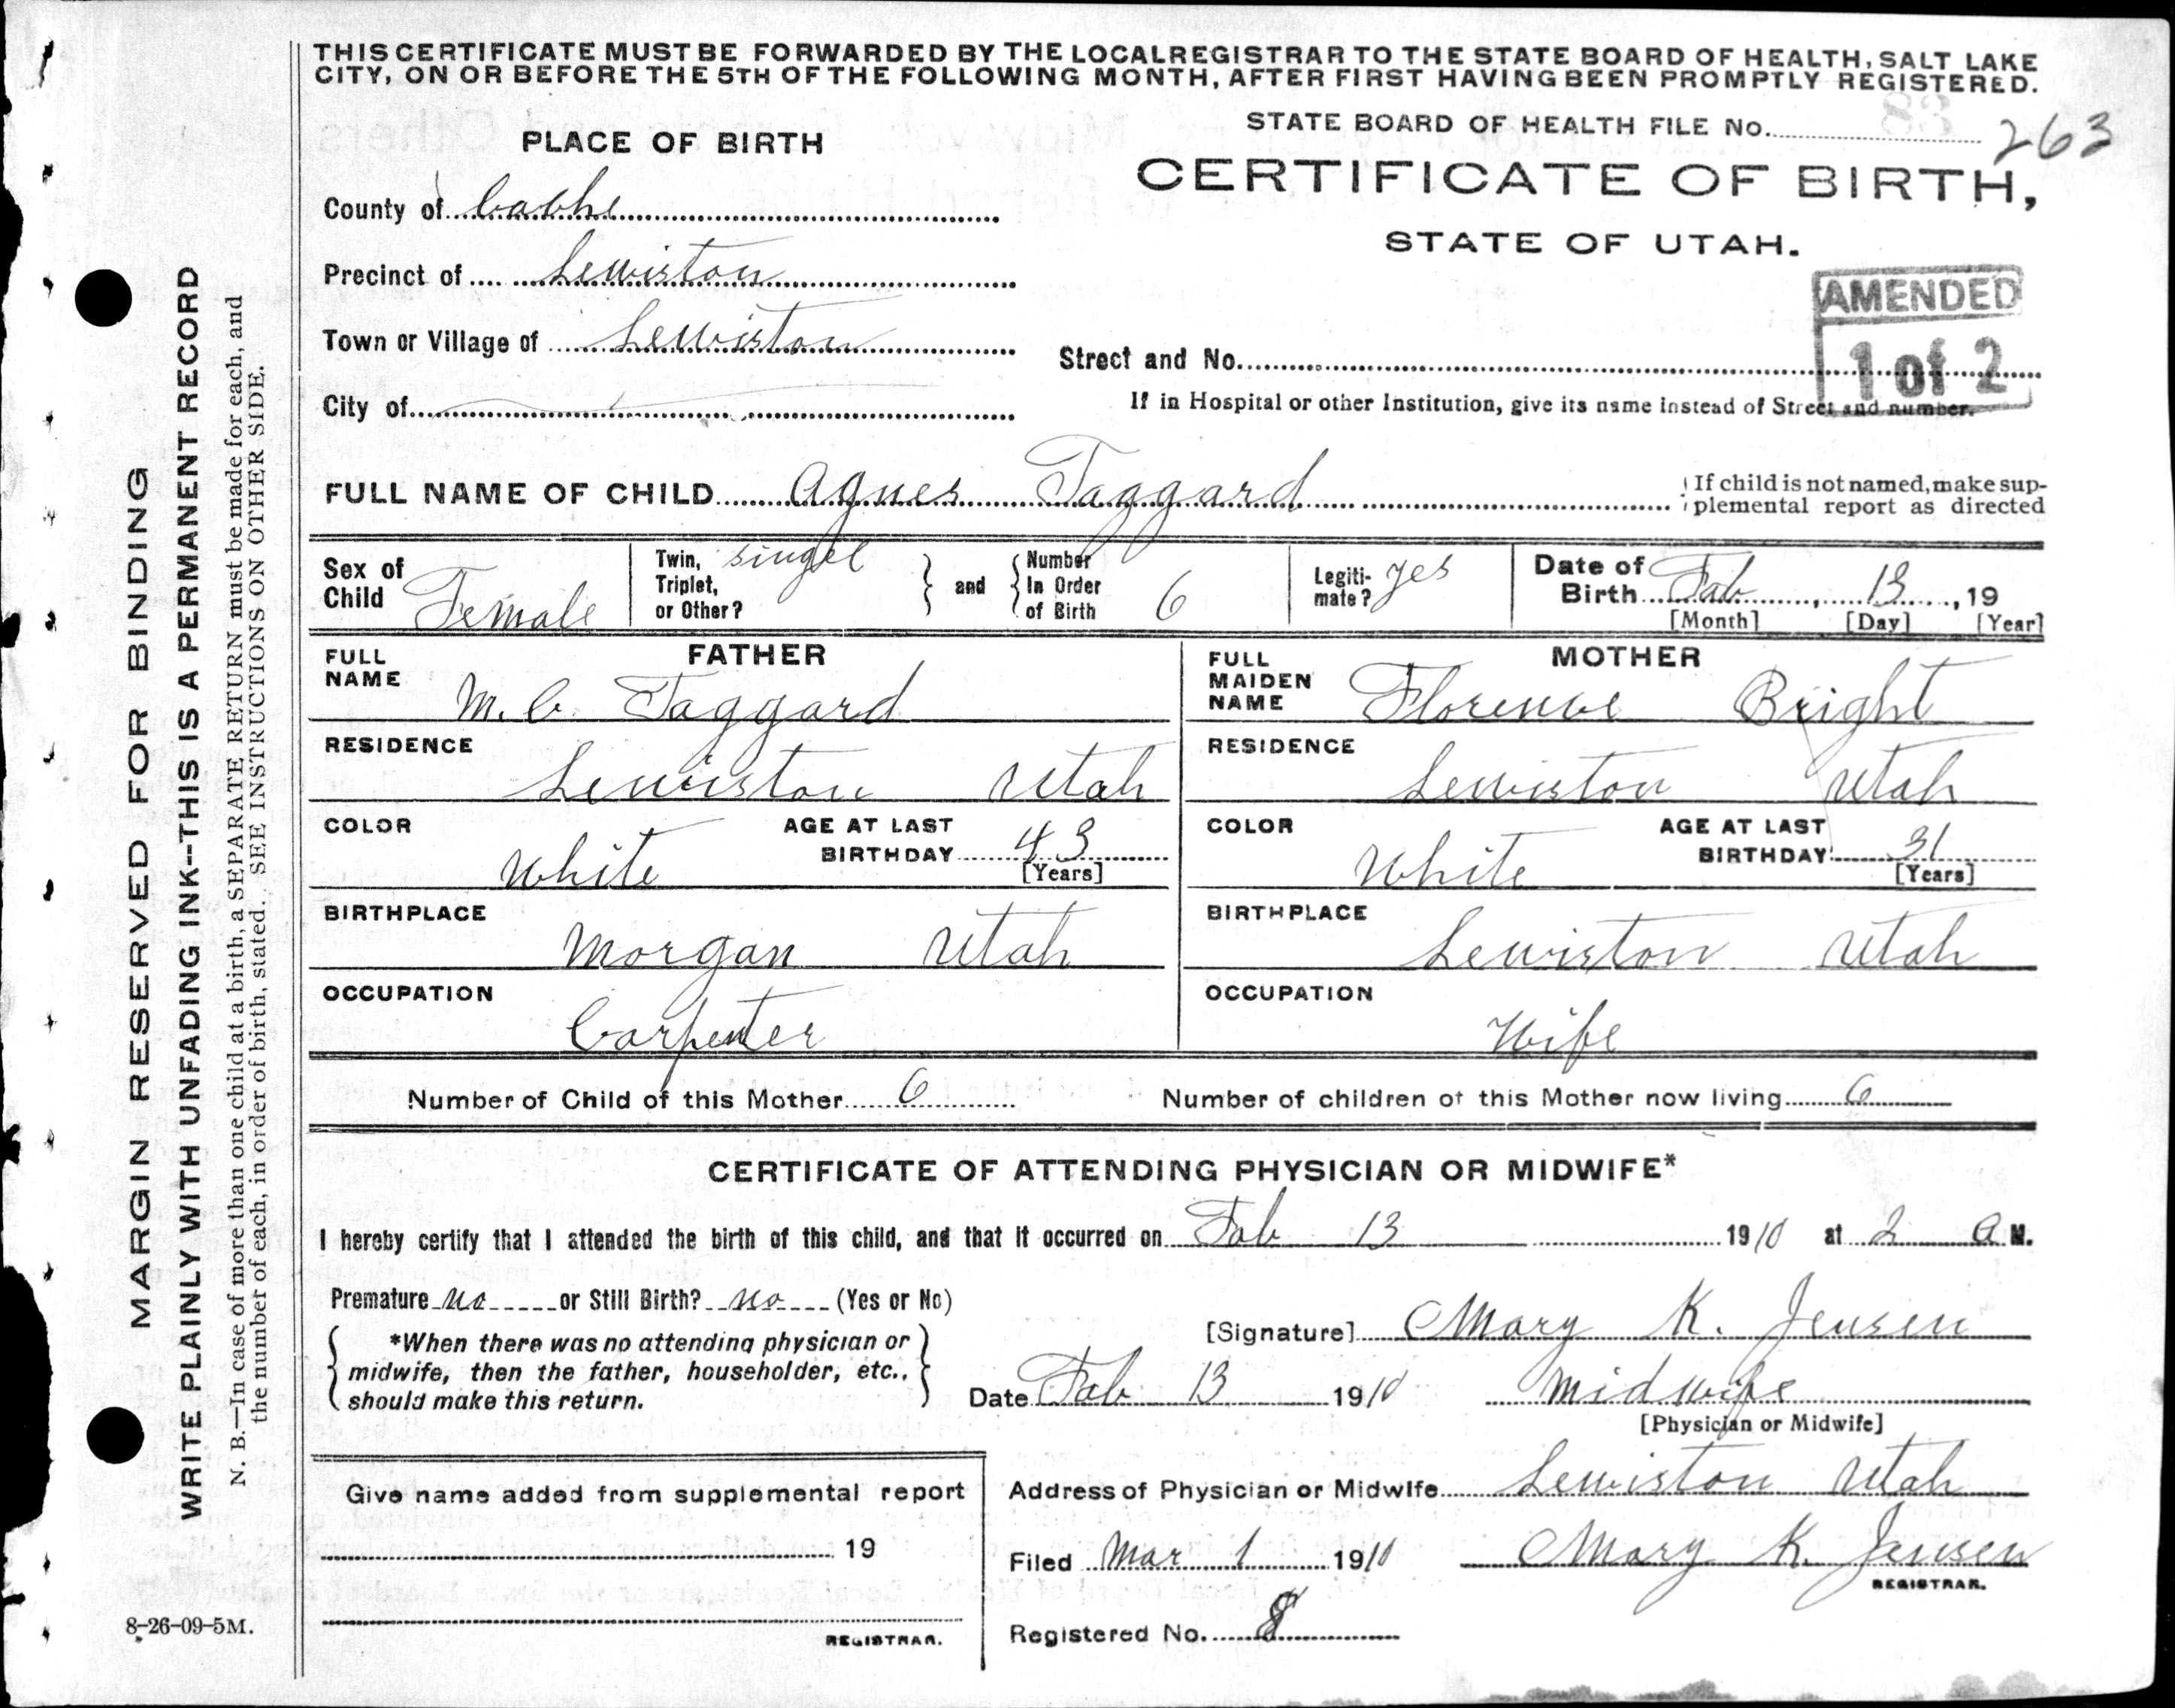 THIS CERTIFICATE MUST BE FORWARDED BY THE LOCAL REGISTRAR TO THE STATE BOARD OF HEALTH, SALT LAKE
CITY, ON OR BEFORE THE 5TH OF THE FOLLOWING MONTH, AFTER FIRST HAVING BEEN PROMPTLY REGISTERED.
STATE BOARD OF HEALTH FILE No. 263
PLACE OF BIRTH
CERTIFICATE OF BIRTH,
STATE OF UTAH.
County of Cache
Precinct of Lewiston
Town or Village of Lewiston
City of
AMENDED
1 of 2
Street and No.
If in Hospital or other Institution, give its name instead of Street and number.
FULL NAME OF CHILD Agnes Taggard
If child is not named, make sup-
plemental report as directed
Sex of
Child Female
Twin,
Triplet,
or Other? singel
and
Number
In Order
of Birth 6
Legiti-
mate? yes
Date of
Birth Feb, 13, 19
[Month] [Day] [Year]
FATHER
FULL
NAME M. C. Taggard
RESIDENCE
Lewiston Utah
COLOR White
AGE AT LAST
BIRTHDAY 43
[Years]
BIRTHPLACE
Morgan Utah
OCCUPATION
Carpenter
MOTHER
FULL
MAIDEN
NAME Florence Bright
RESIDENCE
Lewiston Utah
COLOR White
AGE AT LAST
BIRTHDAY 31
[Years]
BIRTHPLACE
Lewiston Utah
OCCUPATION
Wife
Number of Child of this Mother 6 Number of children of this Mother now living 6
CERTIFICATE OF ATTENDING PHYSICIAN OR MIDWIFE*
I hereby certify that I attended the birth of this child, and that it occurred on Feb 13 1910 at 2 A M.
Premature no or Still Birth? no (Yes or No)
*When there was no attending physician or
midwife, then the father, householder, etc.,
should make this return.
[Signature] Mary K. Jensen
Date Feb 13 1910 midwife
[Physician or Midwife]
Give name added from supplemental report
19
REGISTRAR.
Address of Physician or Midwife Lewiston Utah
Filed Mar 1 1910 Mary K. Jensen
REGISTRAR.
Registered No. 8
8-26-09-5M.
MARGIN RESERVED FOR BINDING
WRITE PLAINLY WITH UNFADING INK--THIS IS A PERMANENT RECORD
N. B.—In case of more than one child at a birth, a SEPARATE RETURN must be made for each, and
the number of each, in order of birth, stated. SEE INSTRUCTIONS ON OTHER SIDE.